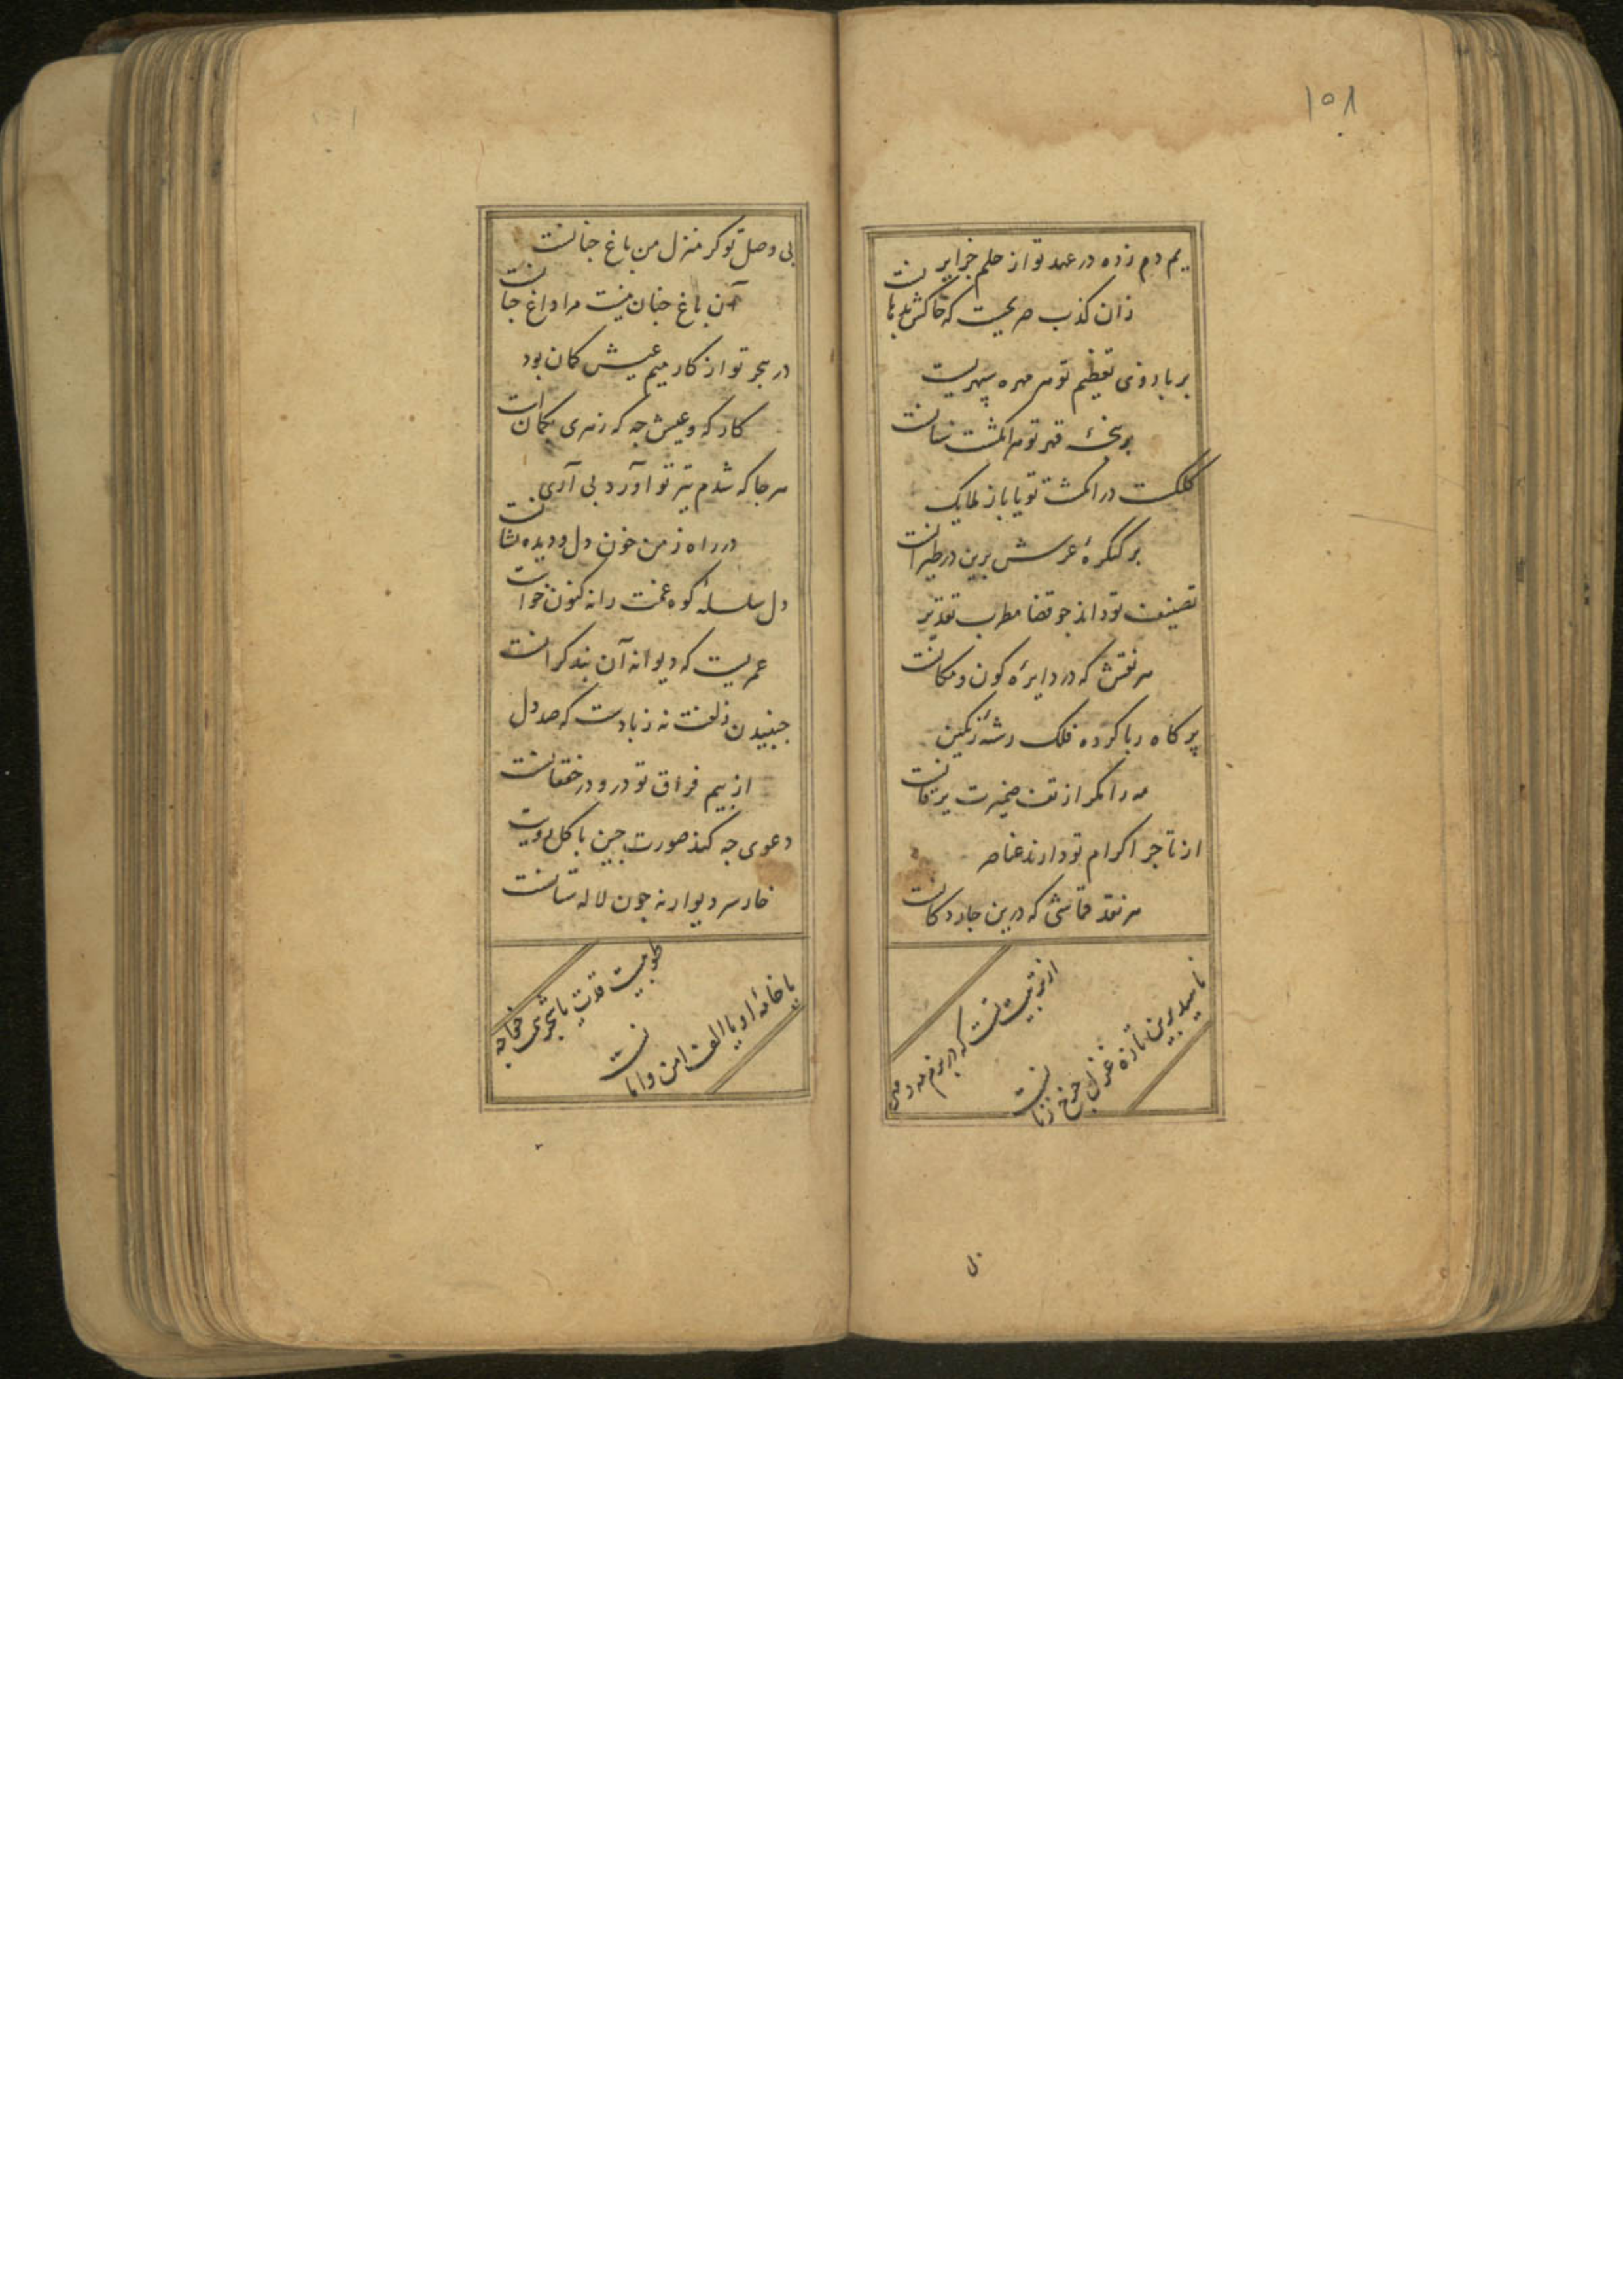 ۱۵۸
یم دم زده در عهد تو از حلم جزایر
زان کذب صریحیت که خاکش بدهانست
بر بازوی تعظیم تو هر مهره سپهریست
بر قهر تو هر انگشت سنانست
کلکست در انگشت تو یا باز ملایک
بر کنگرهٔ عرش برین در طیرانست
تصنیف تو داند جو قضا مطرب تقدیر
هر نقش که در دایرهٔ کون و مکانست
پر کاه ربا کرده فلک رشهٔ زنکین
مه را مکر از تف ضمیرت یرقانست
از تاجر اکرام تو دارند عناصر
هر نقد قماشی که درین جار دکانست
از تربیت تست که در بزم مه و مهر
ناهید برین تازه غزل جرخ زنانست
بی وصل تو کر منزل من باغ جنانست
آن باغ جنان نیست مرا داغ جنانست
در هجر تو از کار میم عیش کمان بود
کار که و عیش جه که زهری بکمانست
هر جا که شدم تیر تو آورد پی آری
در راه ز من خون دل و دیده نشانست
دل سلسلهٔ کوه غمت را نه کنون خواست
عمریست که دیوانه آن بند کرانست
جنبیدن زلفت نه ز بادست که صد دل
از بیم فراق تو درو در خفقانست
دعوی جه کند صورت جین با کل رویت
خار سر دیوار نه جون لاله ستانست
طوبیست قدت یا شجری خواجه
یا خامهٔ او یا الف امن و امانست